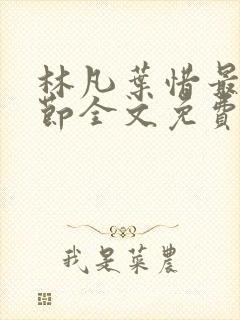 林凡葉惜最
節全文免費
我是菜農